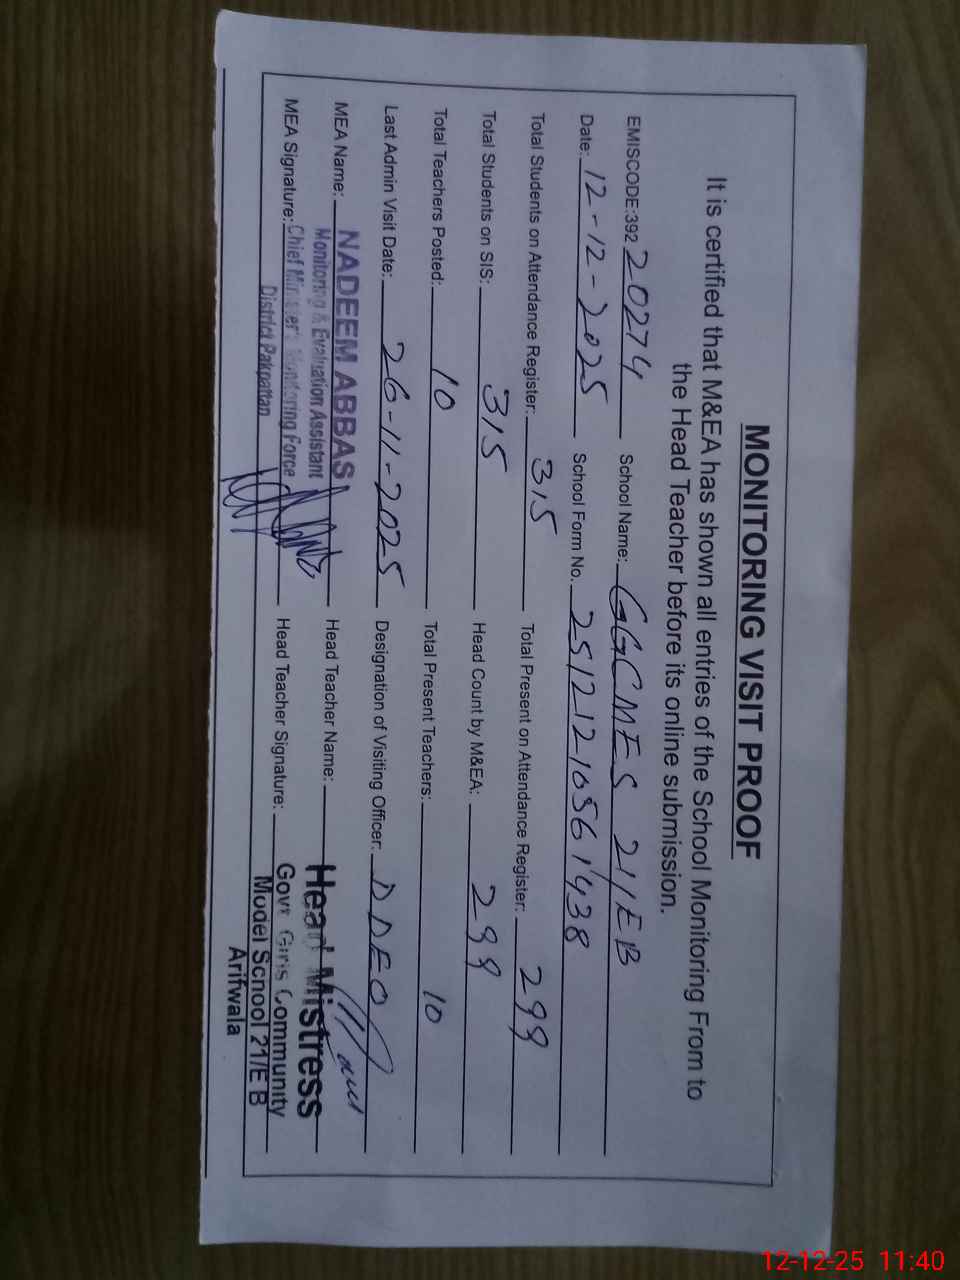 MONITORING VISIT PROOF
It is certified that M&EA has shown all entries of the School Monitoring From to
the Head Teacher before its online submission.
EMISCODE:392 20274 School Name: GGCMES 21/EB
Date: 12-12-2025 School Form No. 251212-10561438
Total Students on Attendance Register: 315 Total Present on Attendance Register: 299
Total Students on SIS: 315 Head Count by M&EA: 299
Total Teachers Posted: 10 Total Present Teachers: 10
Last Admin Visit Date: 26-11-2025 Designation of Visiting Officer: DDEO
MEA Name: NADEEM ABBAS Head Teacher Name: Head Mistress
Monitoring & Evaluation Assistant
MEA Signature: Chief Minister's Monitoring Force Head Teacher Signature: Govt Girls Community
District Pakpattan Model School 21/E B
Arifwala
12-12-25 11:40